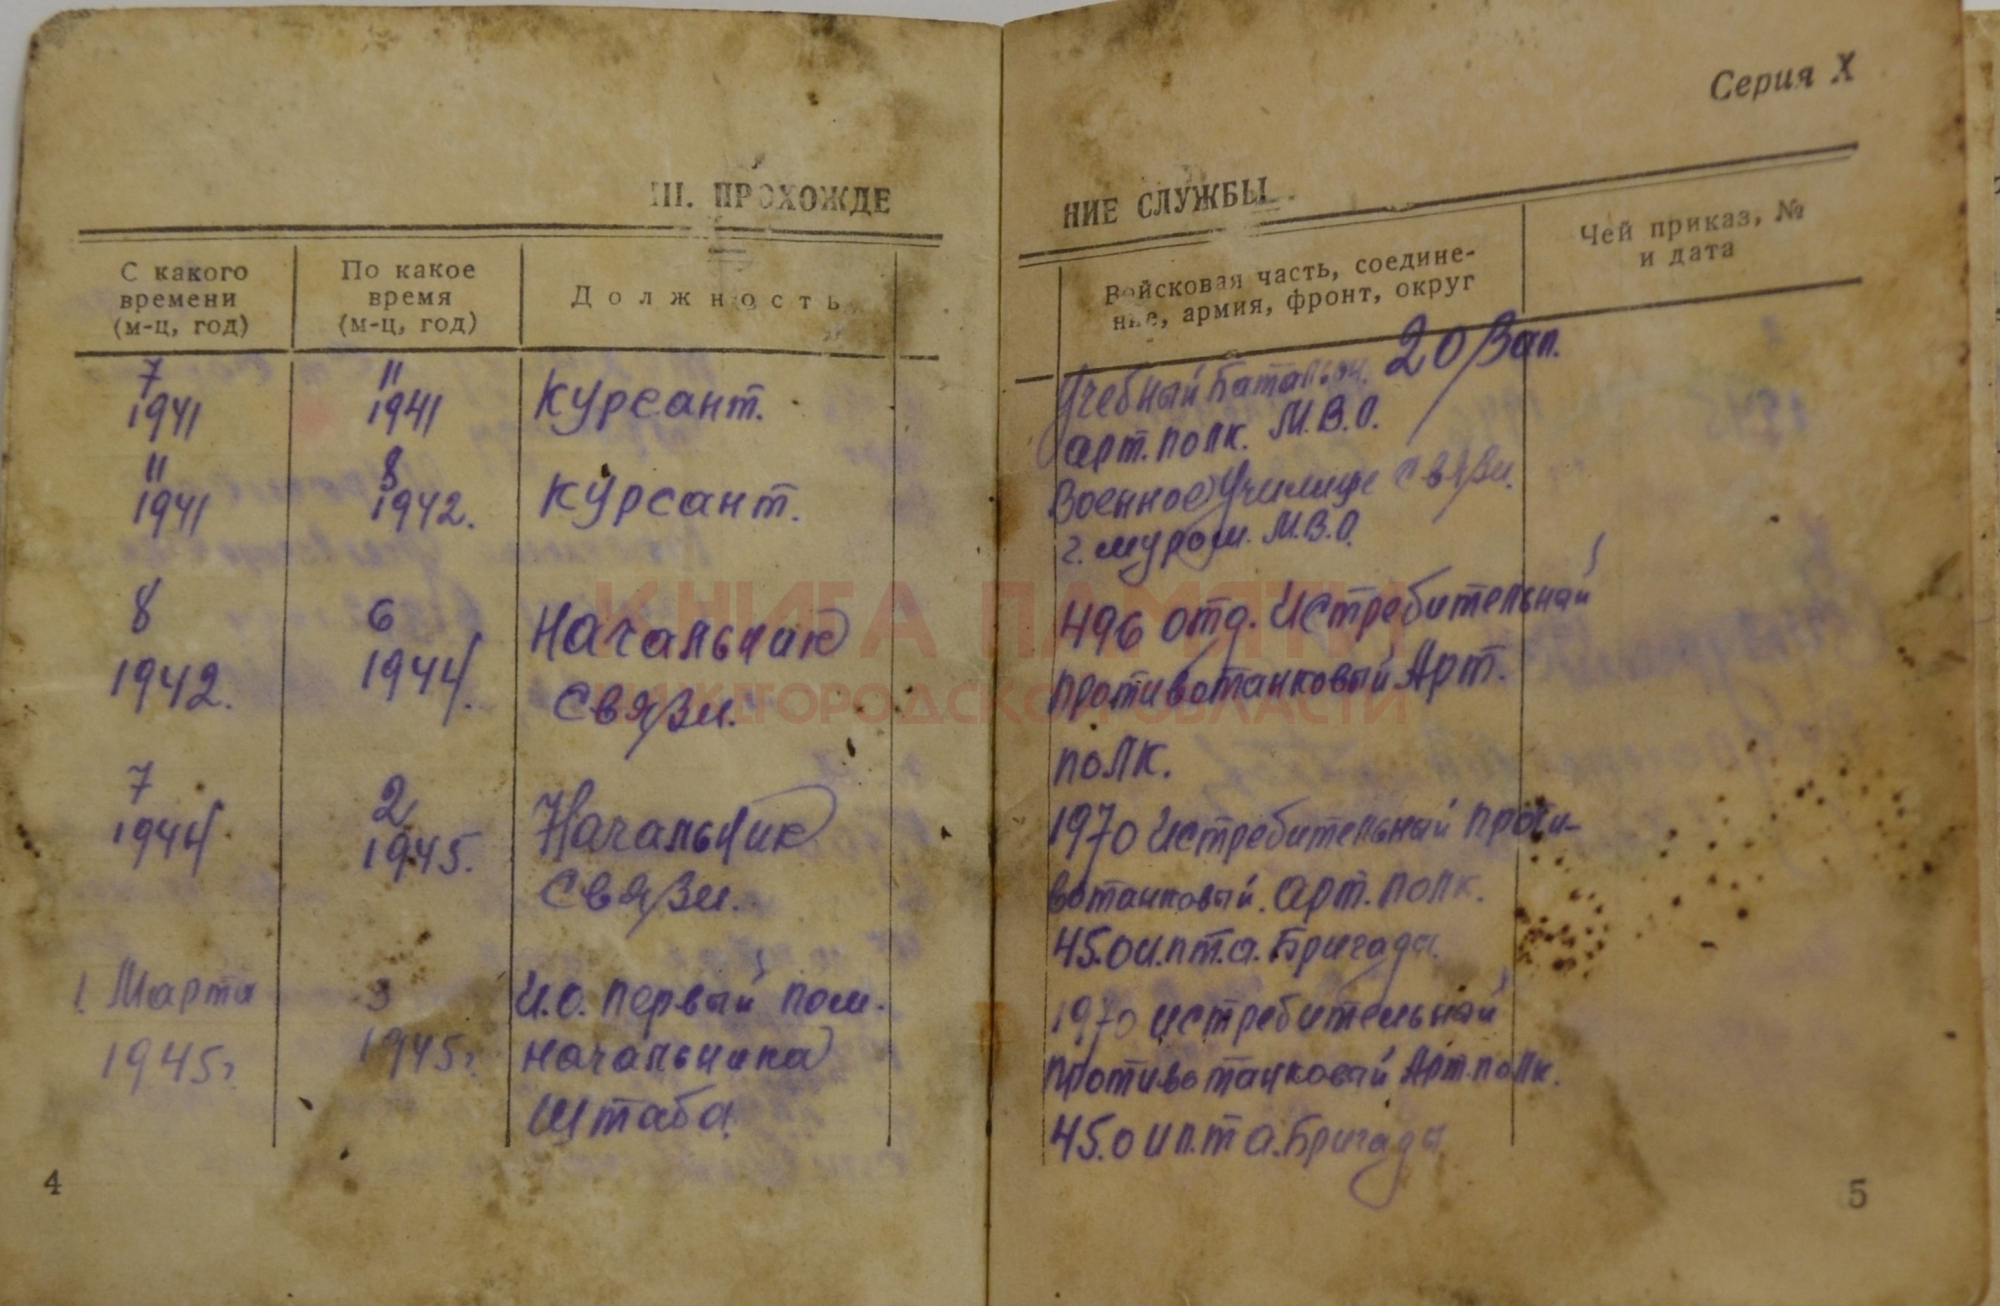 Серия X
III. ПРОХОЖДЕ
НИЕ СЛУЖБЫ
С какого
времени
(м-ц, год)
По какое
время
(м-ц, год)
Должность
Войсковая часть, соедине-
ние, армия, фронт, округ
Чей приказ, №
и дата
7
1941
11
1941
Курсант.
Учебный Батальон. 20 Зап.
арт. полк. М.В.О.
11
1941
8
1942.
Курсант.
Военное Училище связи.
г. муром. М.В.О.
8
1942.
6
1944.
Начальник
связи.
496 отд. Истребительный
противотанковый Арт.
полк.
7
1944.
2
1945.
Начальник
связи.
1970 истребительный проти-
вотанковый. арт. полк.
45.0и.пт.а. Бригада.
1. Марта
1945г.
3
1945г.
И.О. первый пом.
начальника
штаба.
1970 истребительный
противотанковый Арт.полк.
45.0 и п.т а. Бригада
4
5
КНИГА ПАМЯТИ
НИЖЕГОРОДСКОЙ ОБЛАСТИ